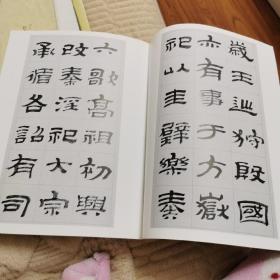 歲王巡狩殷國
亦有事于方嶽
祀以圭璧樂奏
六歌高祖初興
改秦淫祀大宗
承循各詔有司